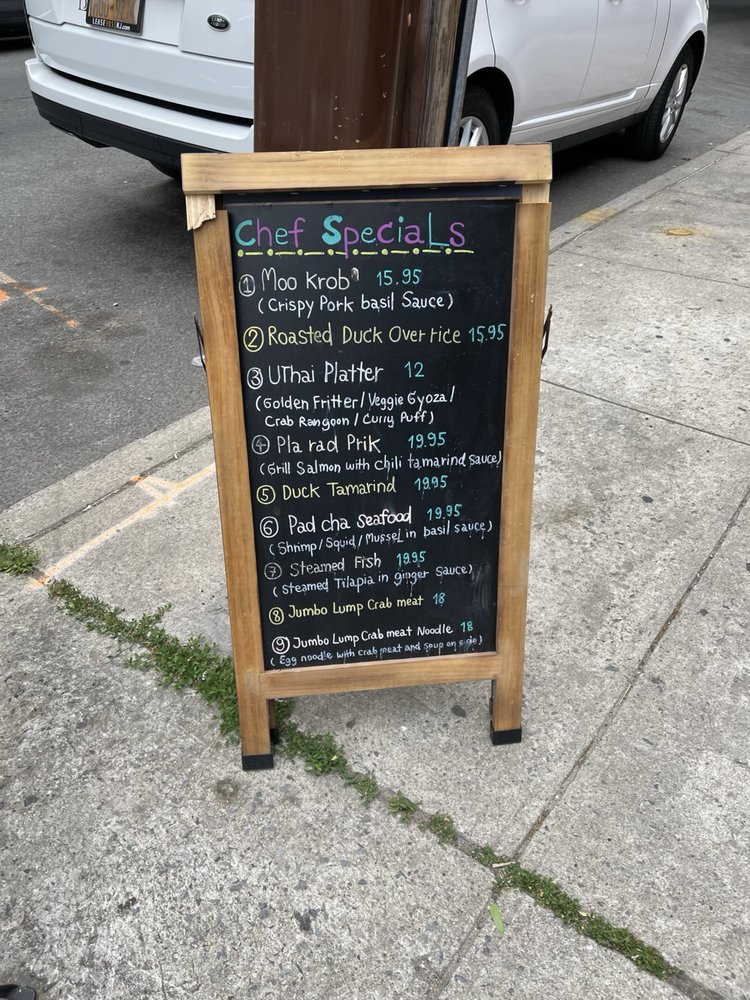 LEASEBOSSNJ.com
Chef SpeciaLs
① Moo Krob 15.95
(Crispy Pork basil Sauce)
② Roasted Duck Over rice 15.95
③ UThai Platter 12
(Golden Fritter/Veggie Gyoza/
Crab Rangoon/Curry Puff)
④ Pla rad Prik 19.95
(Grill Salmon with chili tamarind sauce)
⑤ Duck Tamarind 19.95
⑥ Pad cha seafood 19.95
(Shrimp/Squid/Mussel in basil sauce)
⑦ Steamed Fish 19.95
(Steamed Tilapia in ginger Sauce)
⑧ Jumbo Lump Crab meat 18
⑨ Jumbo Lump Crab meat Noodle 18
(Egg noodle with crab meat and soup on side)